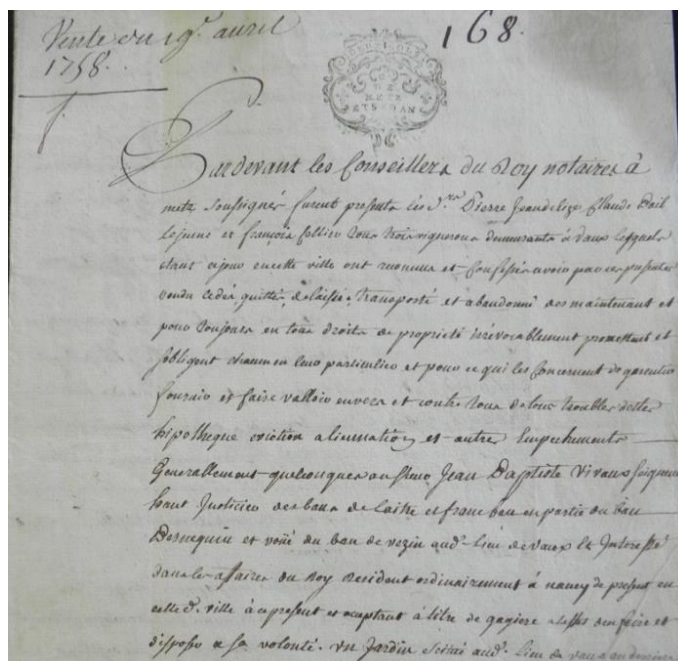 Vente du 19e. avril
1758.
168.
DE METZ
ET SEDAN
Pardevant les Conseillers du Roy notaires à
metz soussignés furent presents les Srs. Pierre Jeandelize Claude
lejeune et françois tous trois vignerons demeurants à Vaux lesquels
étant ajour en cette ville ont reconnus et Confessés avoir par ces presentes
vendu cedés quittés delaissés transporté et abandonné des maintenant et
pour toujours en tous droits de propriété irrévocablement promettent et
sobligent chacun en leur particulier et pour ce qui les Concernent de garantir
fournir et faire valloir envers et contre tous de tous troubles dettes
hipotheque eviction alienation et autre Empechements
Generallement quelconques au sieur Jean Baptiste Vivaux seigneur
haut Justicier des bans de laitre et franc ban en partie du ban
Desnequin et voüé du ban de vezin aud. lieu de vaux et Interessé
dans les affaires du Roy Resident ordinairement à nancy de present en
cette d. ville à ce present et aceptant à titre de gagiere a effet den faire et
disposer a sa volonté. un Jardin scitué aud. lieu de vaux au dessus